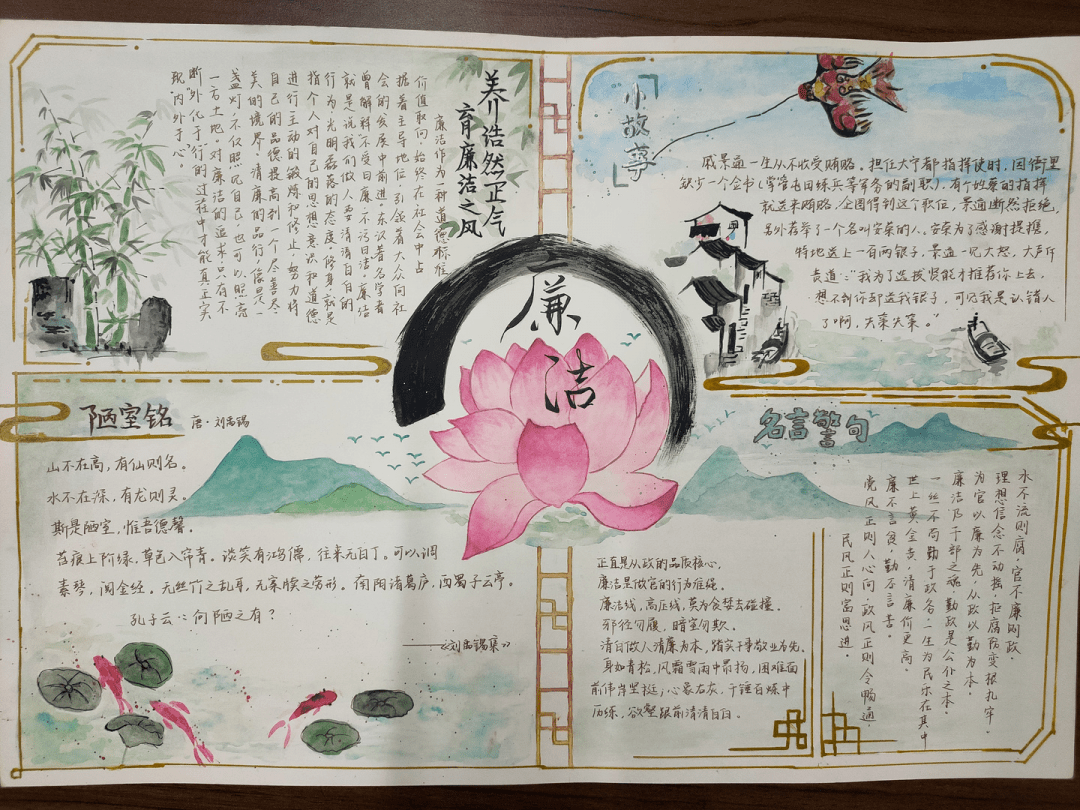 养浩然正气
育廉洁之风
廉洁作为一种道德标准
价值取向，始终在社会中占
据着主导地位，引领着大众向社
会的发展中前进。东汉著名学者
曾解释不受曰廉，不污曰洁。廉洁
就是说我们做人要清清白白的
行为，光明磊落的态度。修身就是
指个人对自己的思想意识和道德
进行主动的敏炼和修止，努力将
自己的品德提高到一个尽善尽
美的境界。清廉的品行，像是一
盏灯，不仅照见自己，也可以照亮
一方土地。对廉洁的追求只有不
断"外化于"行的过程中才能真正实
现"内外于"心。
「小故事」
戚景通一生从不收受贿赂。担任大宁都指挥使时，因衙里
缺少一个会书（掌管屯田练兵等军务的副职），有个姓桑的指挥
就送来贿赂，企图得到这个职位，景通断然拒绝。
另外荐举了一个名叫安荣的人，安荣为了感谢提携，
特地送上一百两银子，景通一见大怒，大声斥
责道："我为了选拔贤能才推荐你上去，
想不到你却送我银子，可见我是认错人
了啊，失策失策。"
廉
洁
陋室铭 唐·刘禹锡
山不在高，有仙则名。
水不在深，有龙则灵。
斯是陋室，惟吾德馨。
苔痕上阶绿，草色入帘青。谈笑有鸿儒，往来无白丁。可以调
素琴，阅金经。无丝竹之乱耳，无案牍之劳形。南阳诸葛庐，西蜀子云亭。
孔子云：何陋之有？
——《刘禹锡集》
正直是从政的品质核心，
廉洁是做官的行为准绳。
廉洁线，高压线，莫为贪婪去碰撞。
邪径勿履，暗室勿欺。
清白做人清廉为本，踏实干事敬业为先。
身如青松，风霜雪雨中最扬，困难面
前伟岸坚挺；心慕石灰，千锤百炼中
历练，欲壑跟前清清白白。
名言警句
水不流则腐，官不廉则政。
理想信念不动摇，拒腐防变根扎牢。
为官以廉为先，从政以勤为本。
廉洁乃干部之魂，勤政是公仆之本。
一丝不苟勤于政务，一生为民乐在其中
世上黄金贵，清廉价更高。
廉不言贪，勤不言苦。
党风正则人心向，政风正则令畅通，
民风正则富思进。